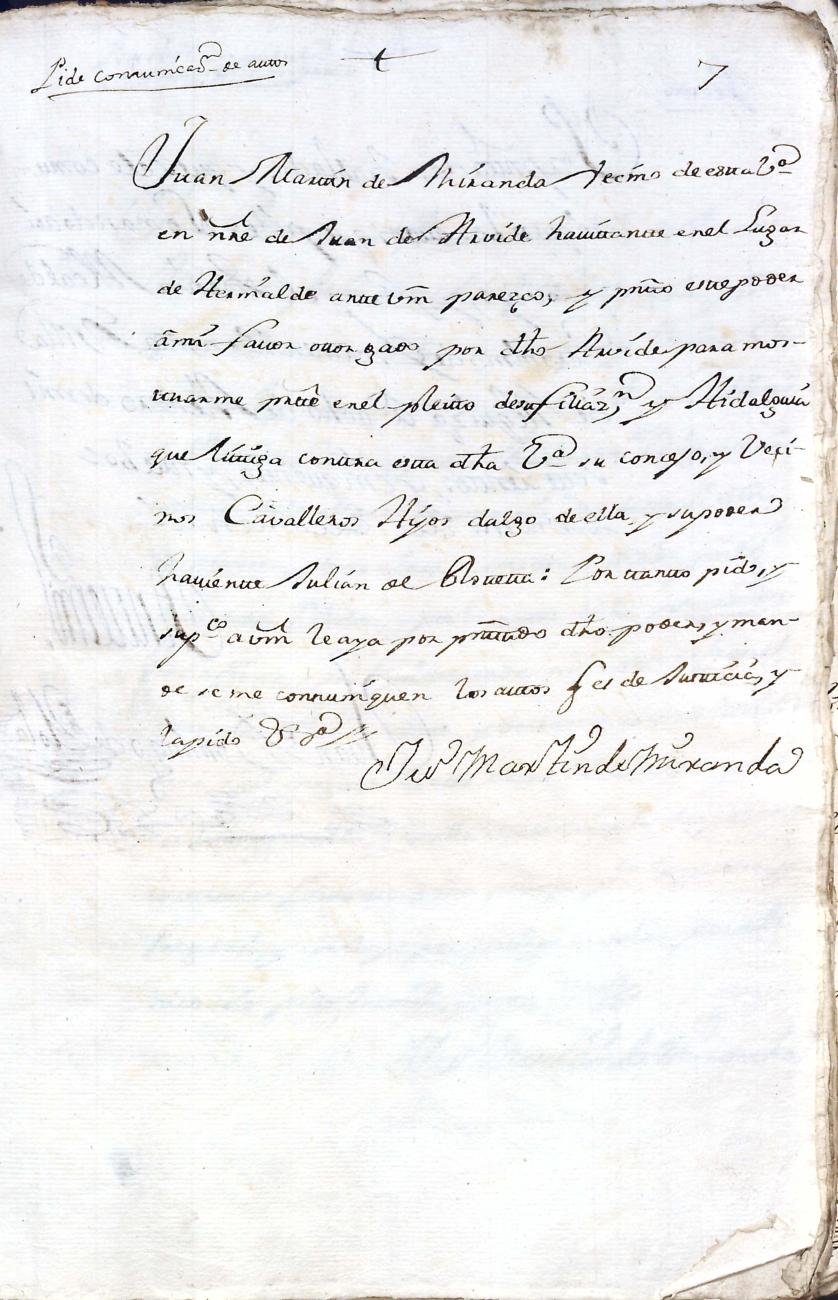 Pide comunicaon de autos
7
Juan Martin de Miranda vecino de esta Va
en nre de Juan de Arvide havitante en el Lugar
de Hernialde ante vm parezco, y pnto este poder
a mi favor otorgado por dho Arvide para mos-
trarme parte en el pleito de su filiazn, y Hidalguia
que litiga contra esta dha Va su concejo, y Veci-
nos Cavalleros Hijos dalgo de ella, y su poder
haviente Julián de : Por tanto pido, y
supco a vm le aya por pntado dho poder, y man-
de se me comuniquen los autos es de Justicia, y
la pido &a
Juo Martin de Miranda